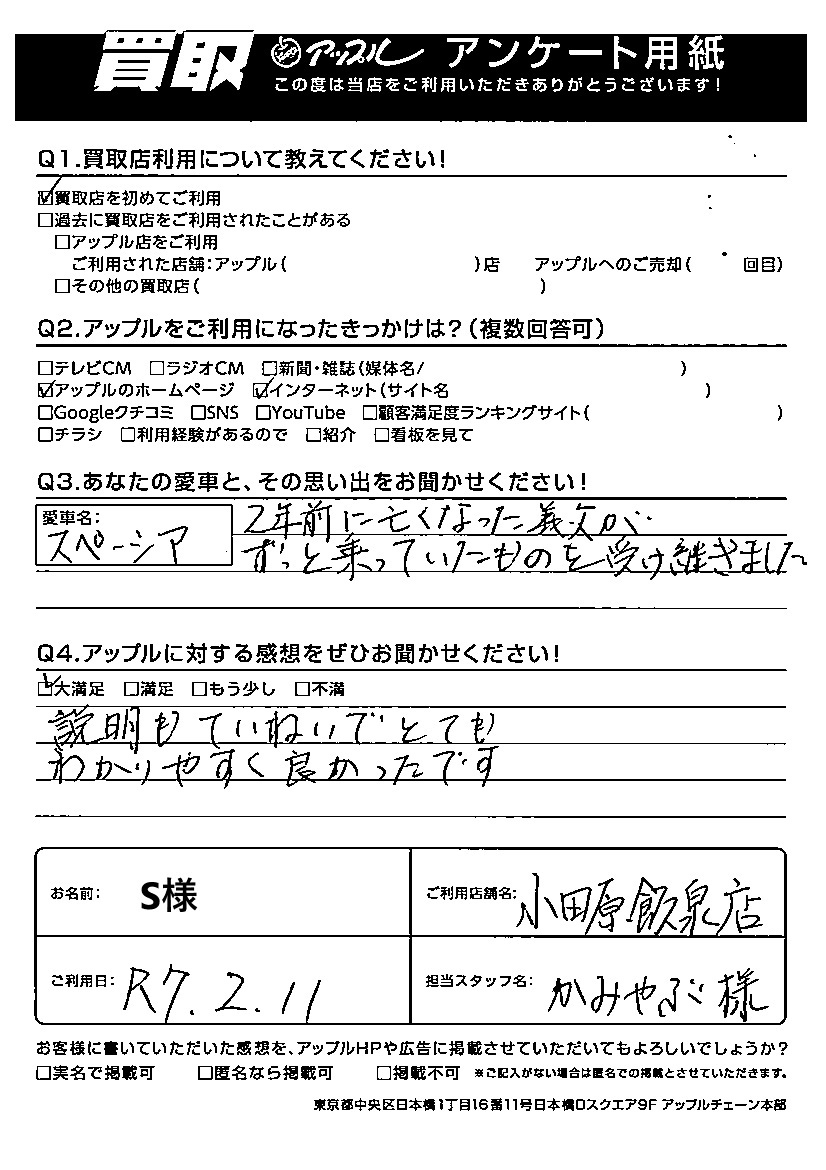 買取 アップル アンケート用紙
この度は当店をご利用いただきありがとうございます！
Q1.買取店利用について教えてください！
☑買取店を初めてご利用
□過去に買取店をご利用されたことがある
□アップル店をご利用
ご利用された店舗：アップル（　　　）店　アップルへのご売却（　　回目）
□その他の買取店（　　　）
Q2.アップルをご利用になったきっかけは？（複数回答可）
□テレビCM □ラジオCM □新聞・雑誌（媒体名/　　　）
☑アップルのホームページ ☑インターネット（サイト名　　　）
□Googleクチコミ □SNS □YouTube □顧客満足度ランキングサイト（　　　）
□チラシ □利用経験があるので □紹介 □看板を見て
Q3.あなたの愛車と、その思い出をお聞かせください！
愛車名：
スペーシア
2年前に亡くなった義父が
ずっと乗っていたものを受け継ぎました
Q4.アップルに対する感想をぜひお聞かせください！
☑大満足 □満足 □もう少し □不満
説明もていねいでとても
わかりやすく良かったです
お名前： S様
ご利用店舗名：小田原飯泉店
ご利用日：R7.2.11
担当スタッフ名：かみやぶ様
お客様に書いていただいた感想を、アップルHPや広告に掲載させていただいてもよろしいでしょうか？
□実名で掲載可 □匿名なら掲載可 □掲載不可 ※ご記入がない場合は匿名での掲載とさせていただきます。
東京都中央区日本橋1丁目16番11号日本橋Dスクエア9F アップルチェーン本部